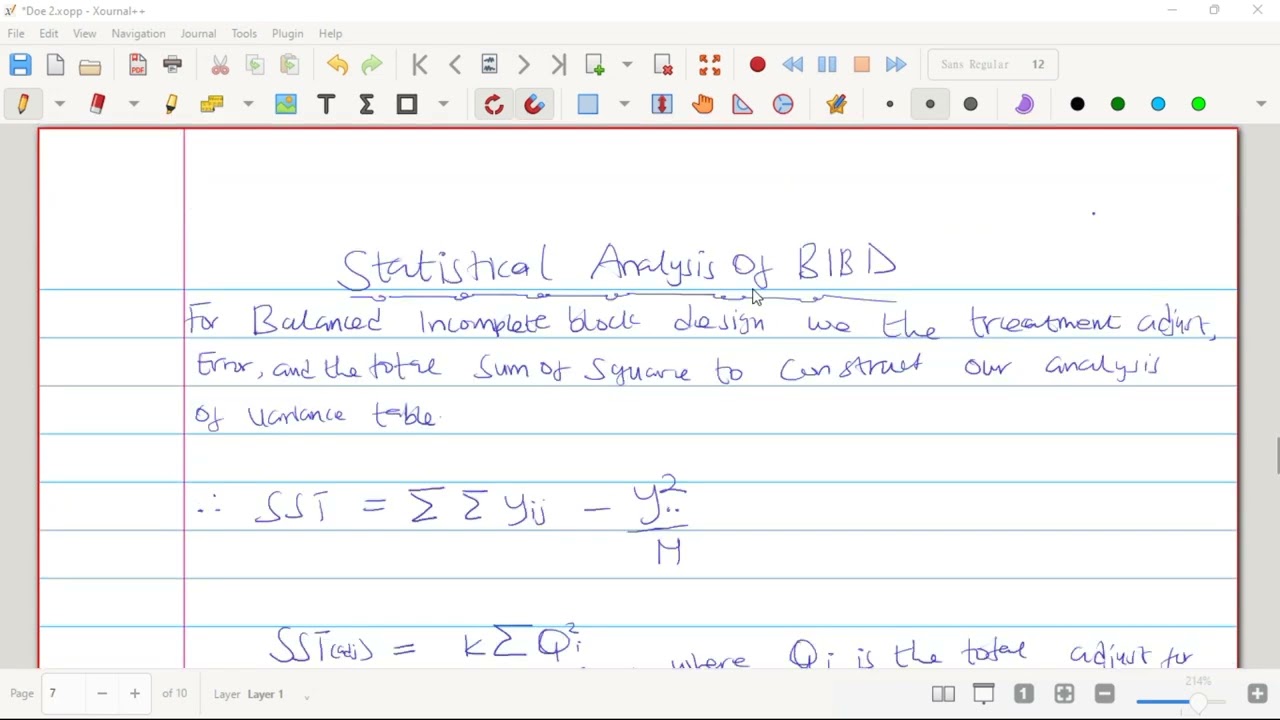 *Doe 2.xopp - Xournal++
File Edit View Navigation Journal Tools Plugin Help
Sans Regular 12
Statistical Analysis Of BIBD
For Balanced Incomplete block design we the treatment adjust,
Error, and the total Sum of Square to Construct our analysis
Of variance table.
∴ SST = Σ Σ yij - y²..
N
SST(adj) = K Σ Q²i
, where Qi is the total adjust for
Page 7 of 10 Layer Layer 1 214%